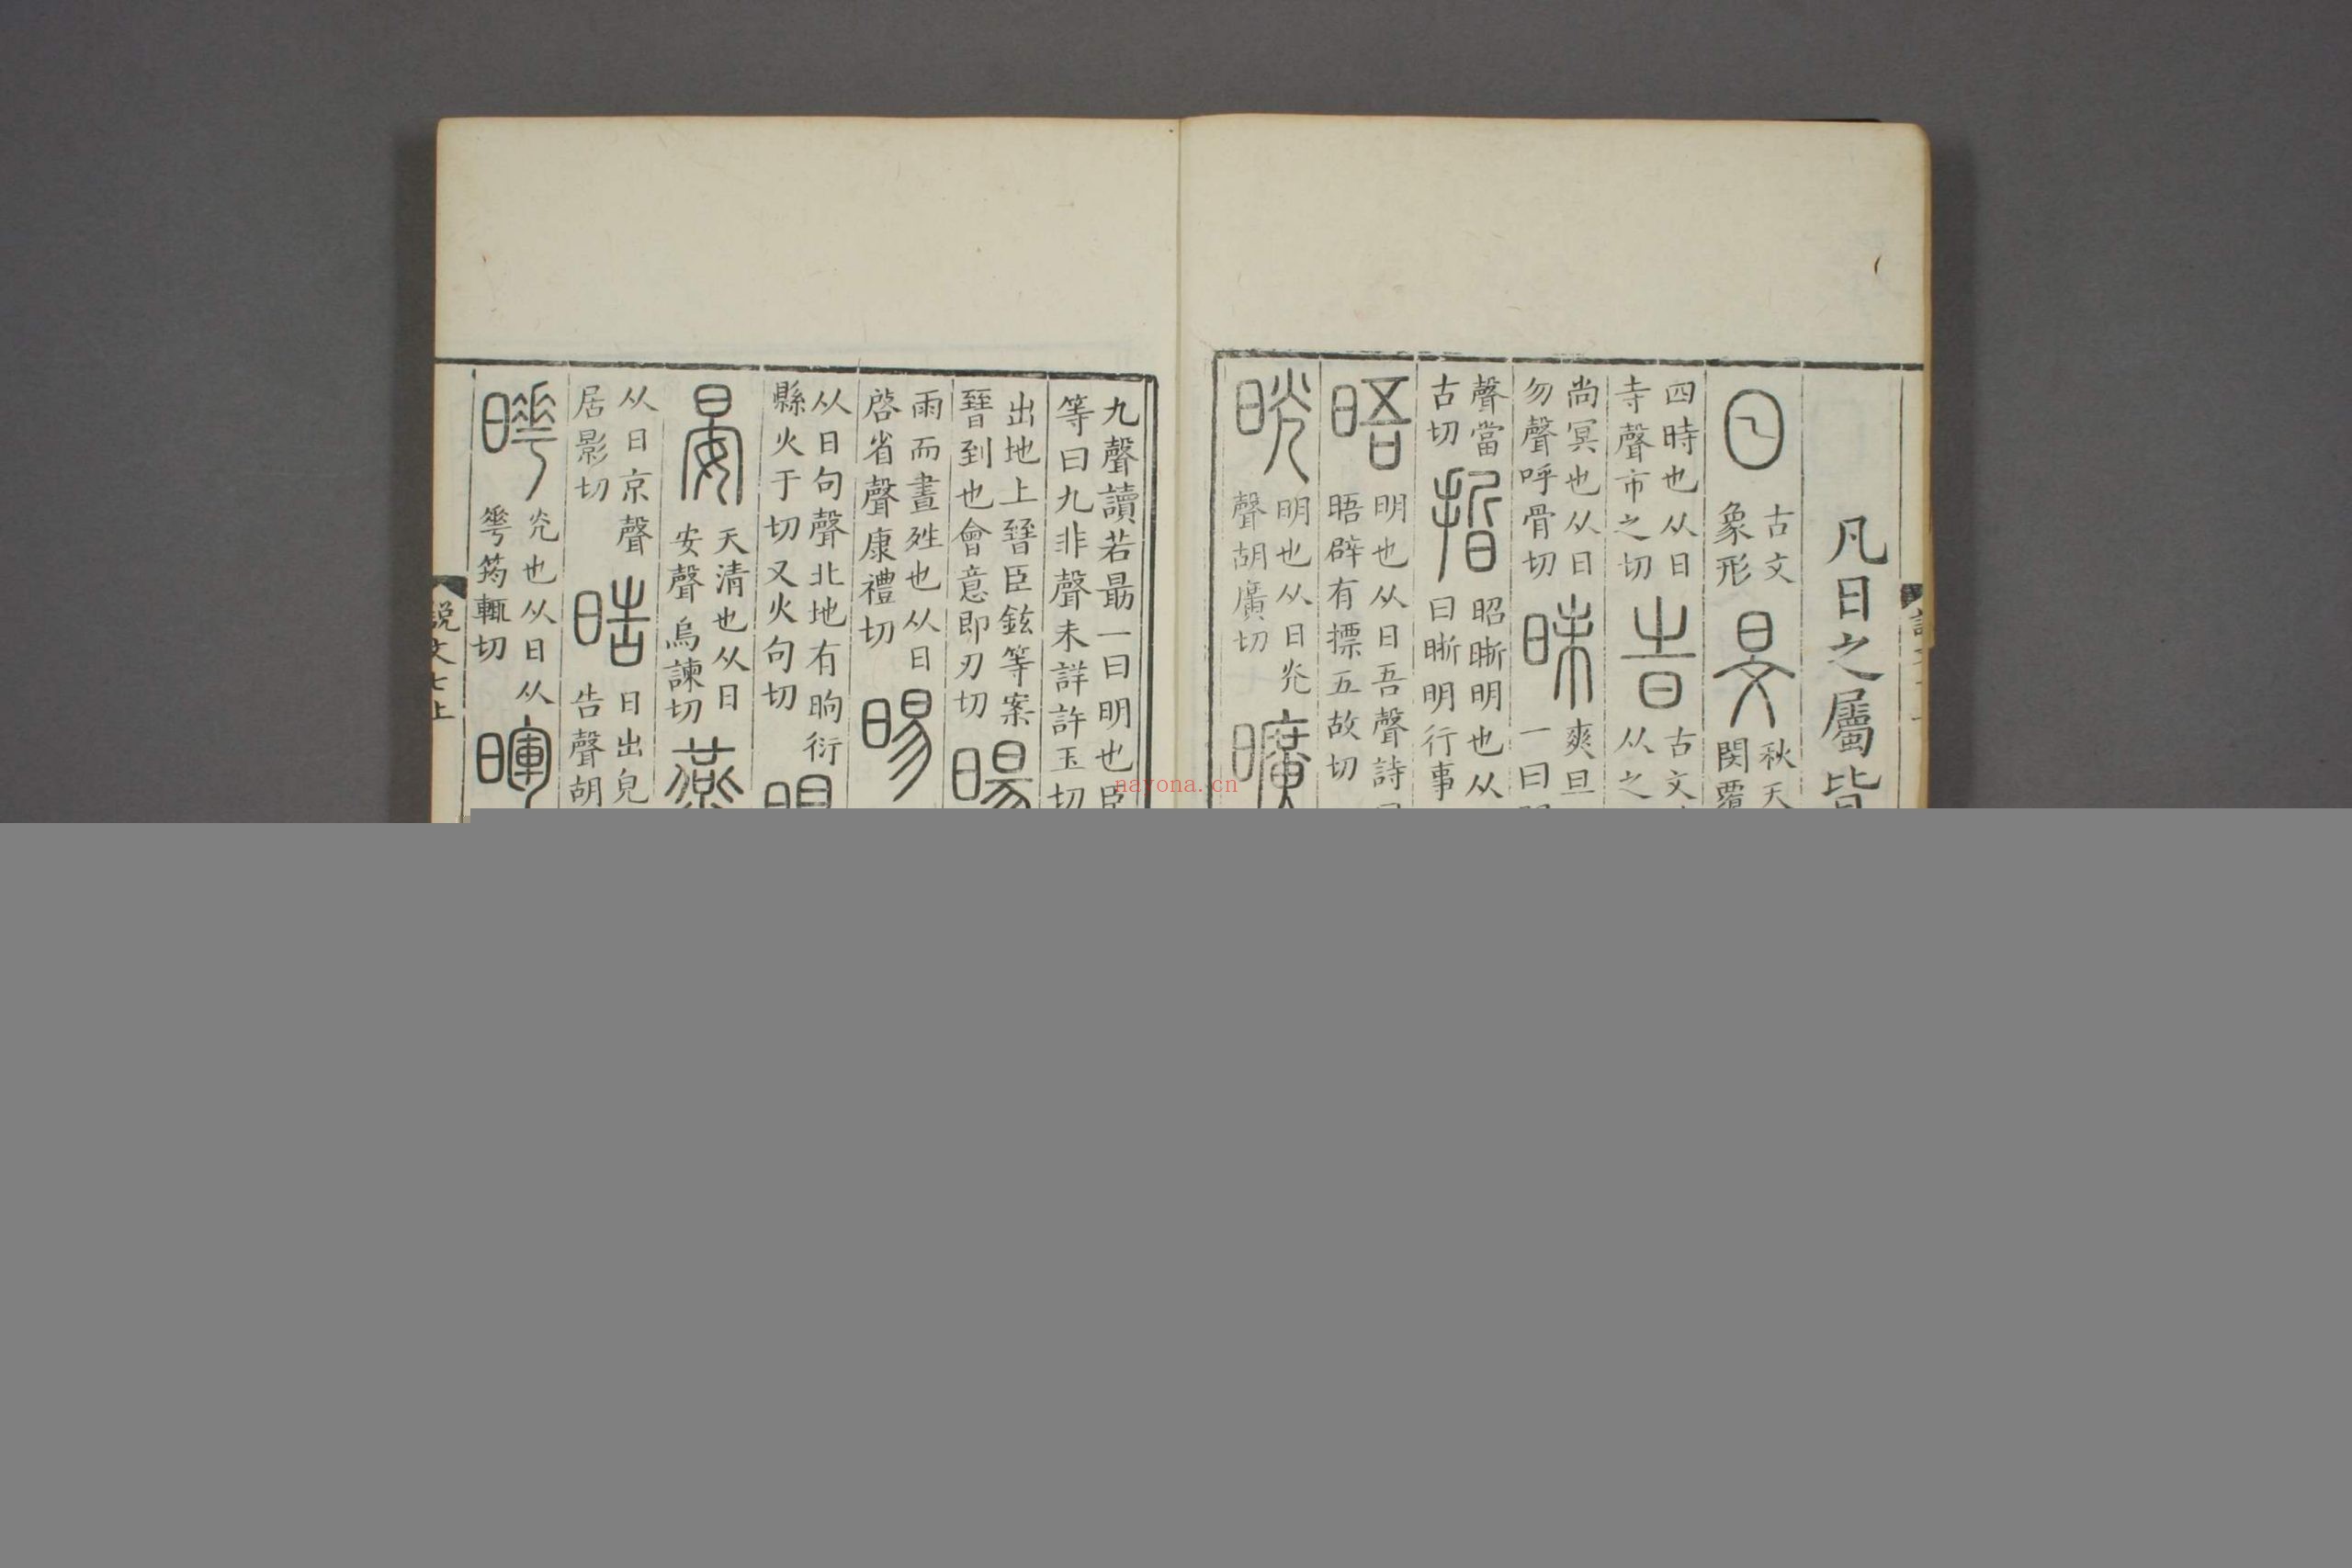 凡日之屬皆
日 古文
象形 旻 秋天
閔覆
四時也从日
寺聲市之切 旹 古文
从之
尚冥也从日
勿聲呼骨切 昧 爽旦
一曰
聲當
古切 晢 昭晣明也从
曰晣明行事
晤 明也从日吾聲詩
晤辟有摽五故切
晄 明也从日炗
聲胡廣切 曠
九聲讀若最一曰明也臣
等曰九非聲未詳許玉切
出地上㬜臣鉉等案
㬜到也會意即刃切 暘
雨而晝夝也从日
啓省聲康禮切 晹
从日句聲北地有昫衍
縣火于切又火句切
晏 天清也从日
安聲烏諫切
从日京聲
居影切 晧 日出皃
告聲胡
曄 炗也从日从
䔢筠輒切 暉
說文七上
nayona.cn